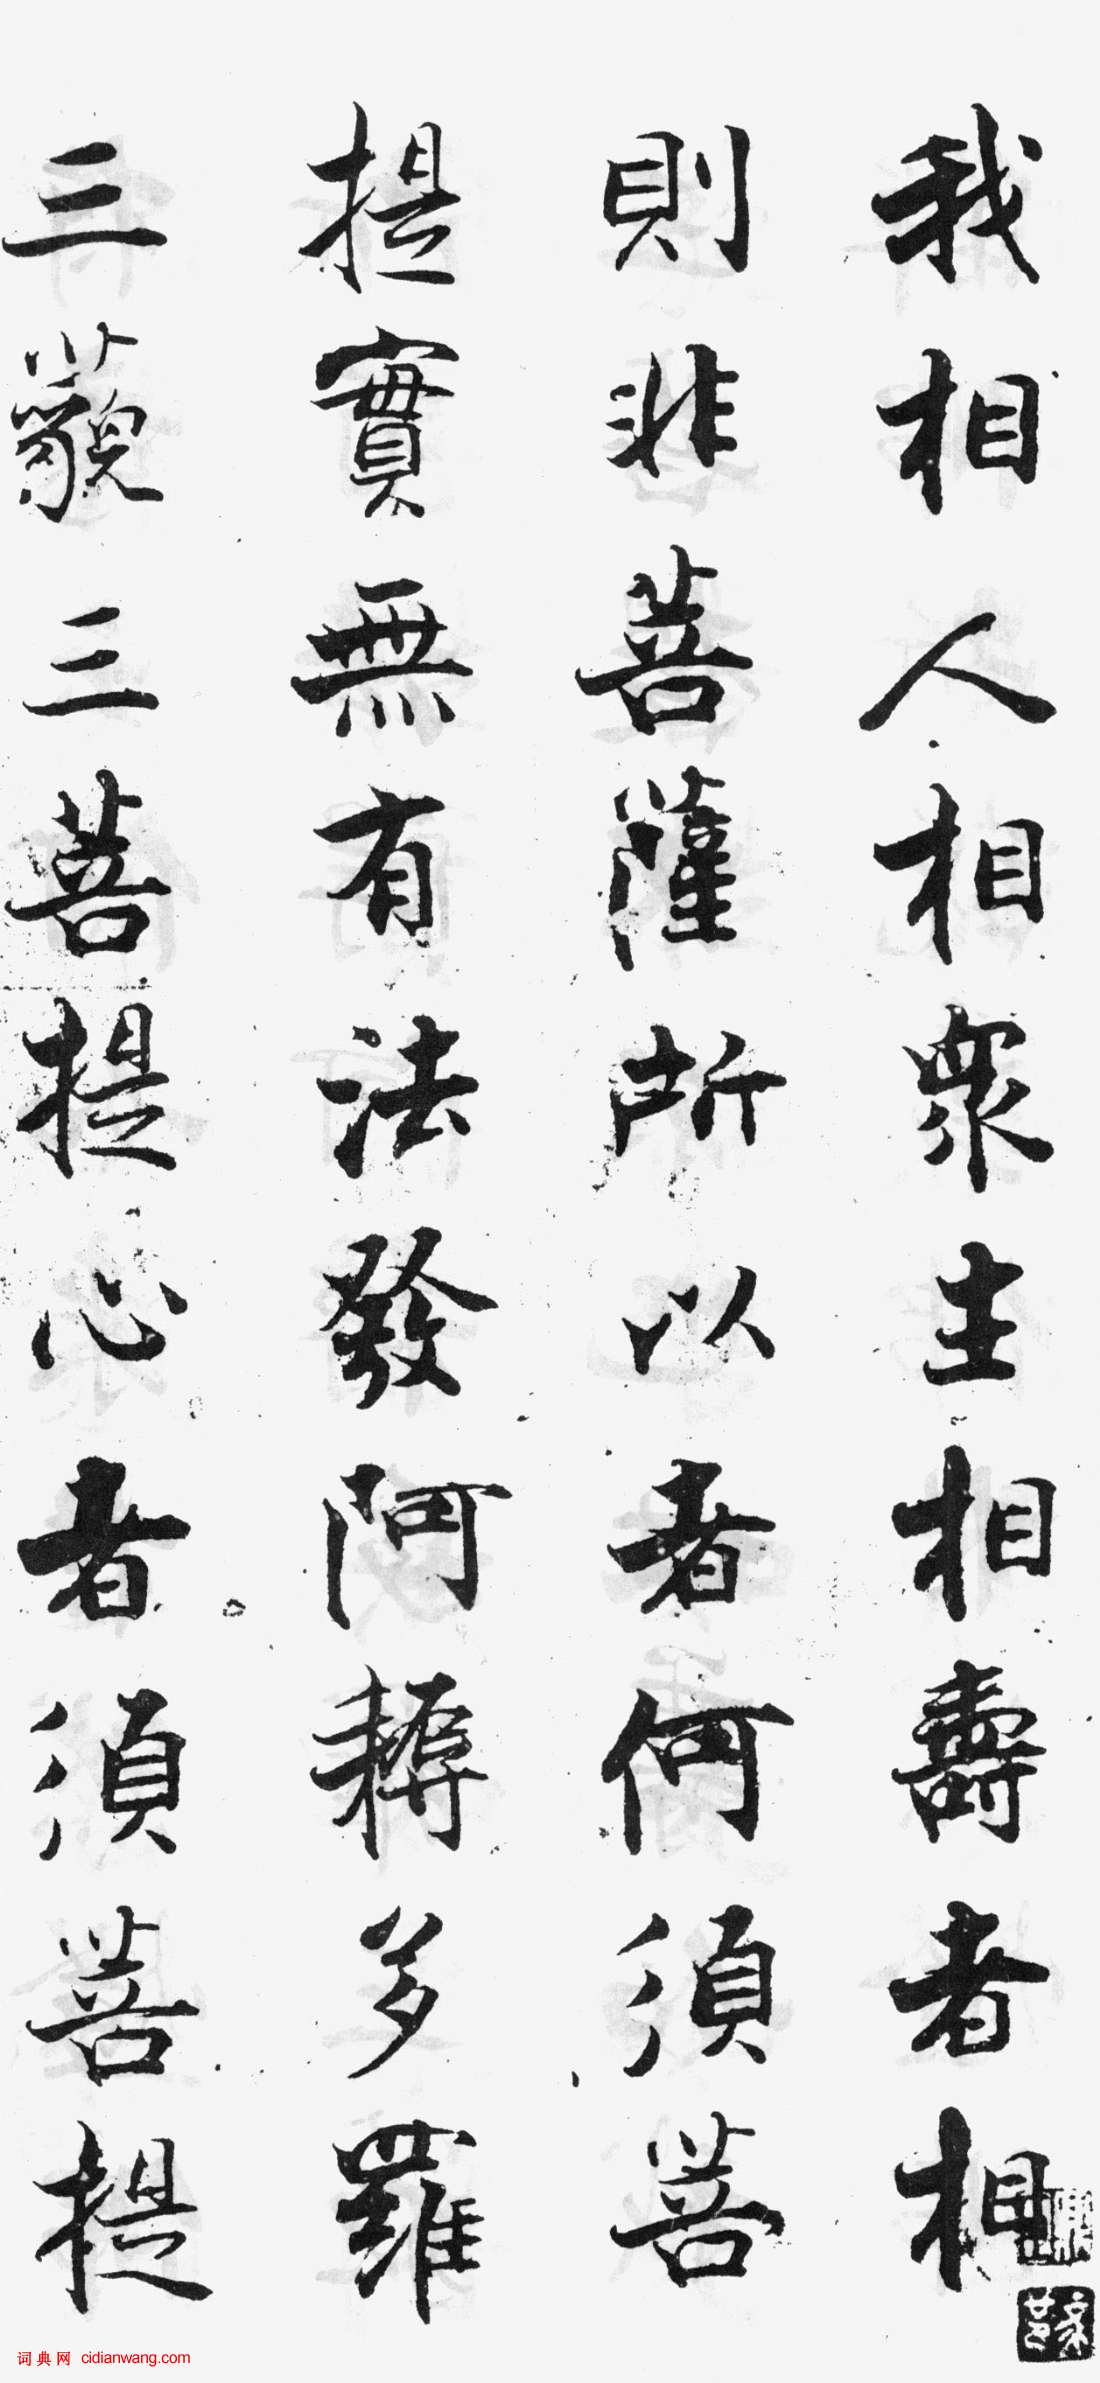 我相人相眾生相壽者相
則非菩薩所以者何須菩
提實無有法發阿耨多羅
三藐三菩提心者須菩提
词典网 cidianwang.com